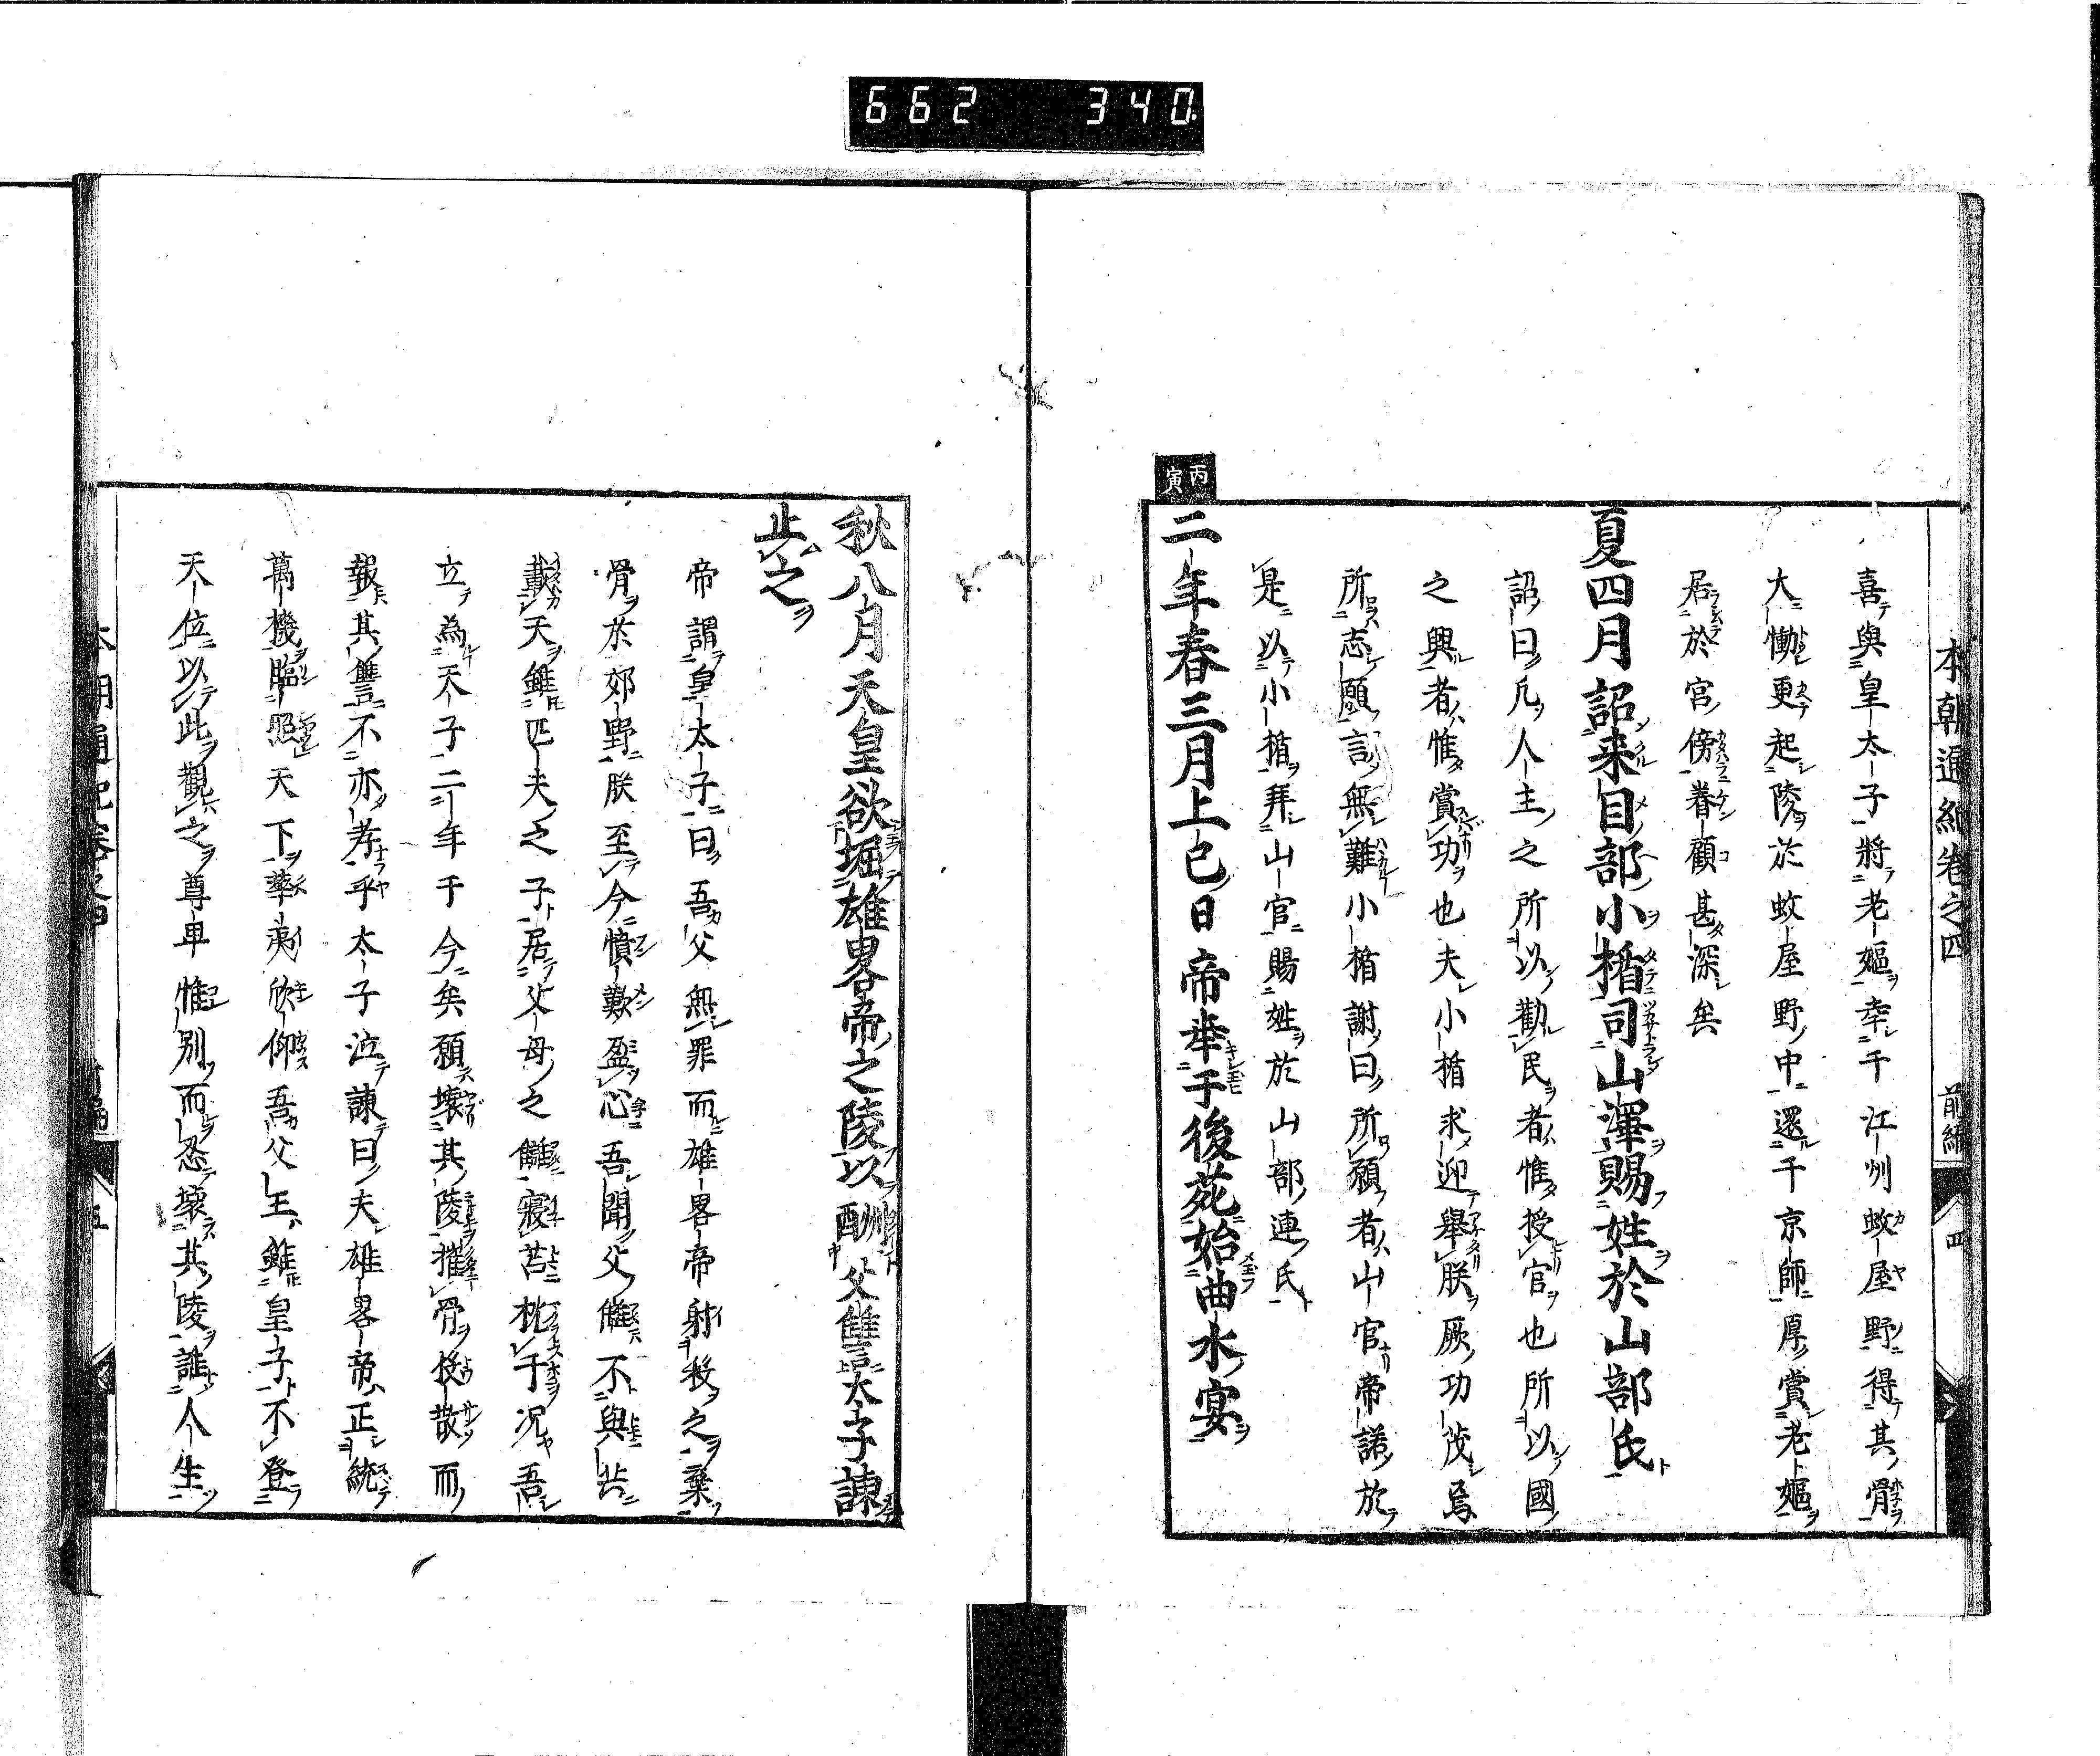 662 340.
本朝通紀卷之四 前編 四
喜與皇太子將老嫗幸于江州蚊屋野得其骨
大慟更起陵於蚊屋野中還于京師厚賞老嫗
居於宮傍眷顧甚深矣
夏四月詔来目部小楯司山澤賜姓於山部氏
詔曰凡人主之所以勸民者惟授官也所以國
之興者惟賞功也夫小楯求迎舉朕厥功茂焉
所志願言無難小楯謝曰所願者山官帝諾於
是以小楯拜山官賜姓於山部連氏
丙寅
二年春三月上巳日帝幸于後苑始曲水宴
秋八月天皇欲堀雄畧帝之陵以酬父讐太子諫
止之
帝謂皇太子曰吾父無罪而雄畧帝射殺之棄
骨於郊野朕至今憤歎盈心吾聞父讎不與共
戴天雖匹夫之子居父母之讎寢苫枕干况吾
立為天子二年于今矣願壞其陵摧骨投散而
報其讐不亦孝乎太子泣諫曰夫雄畧帝正統
萬機臨照天下華夷欣仰吾父王雖皇子不登
天位以此觀之尊卑惟別而忍壞其陵誰人生